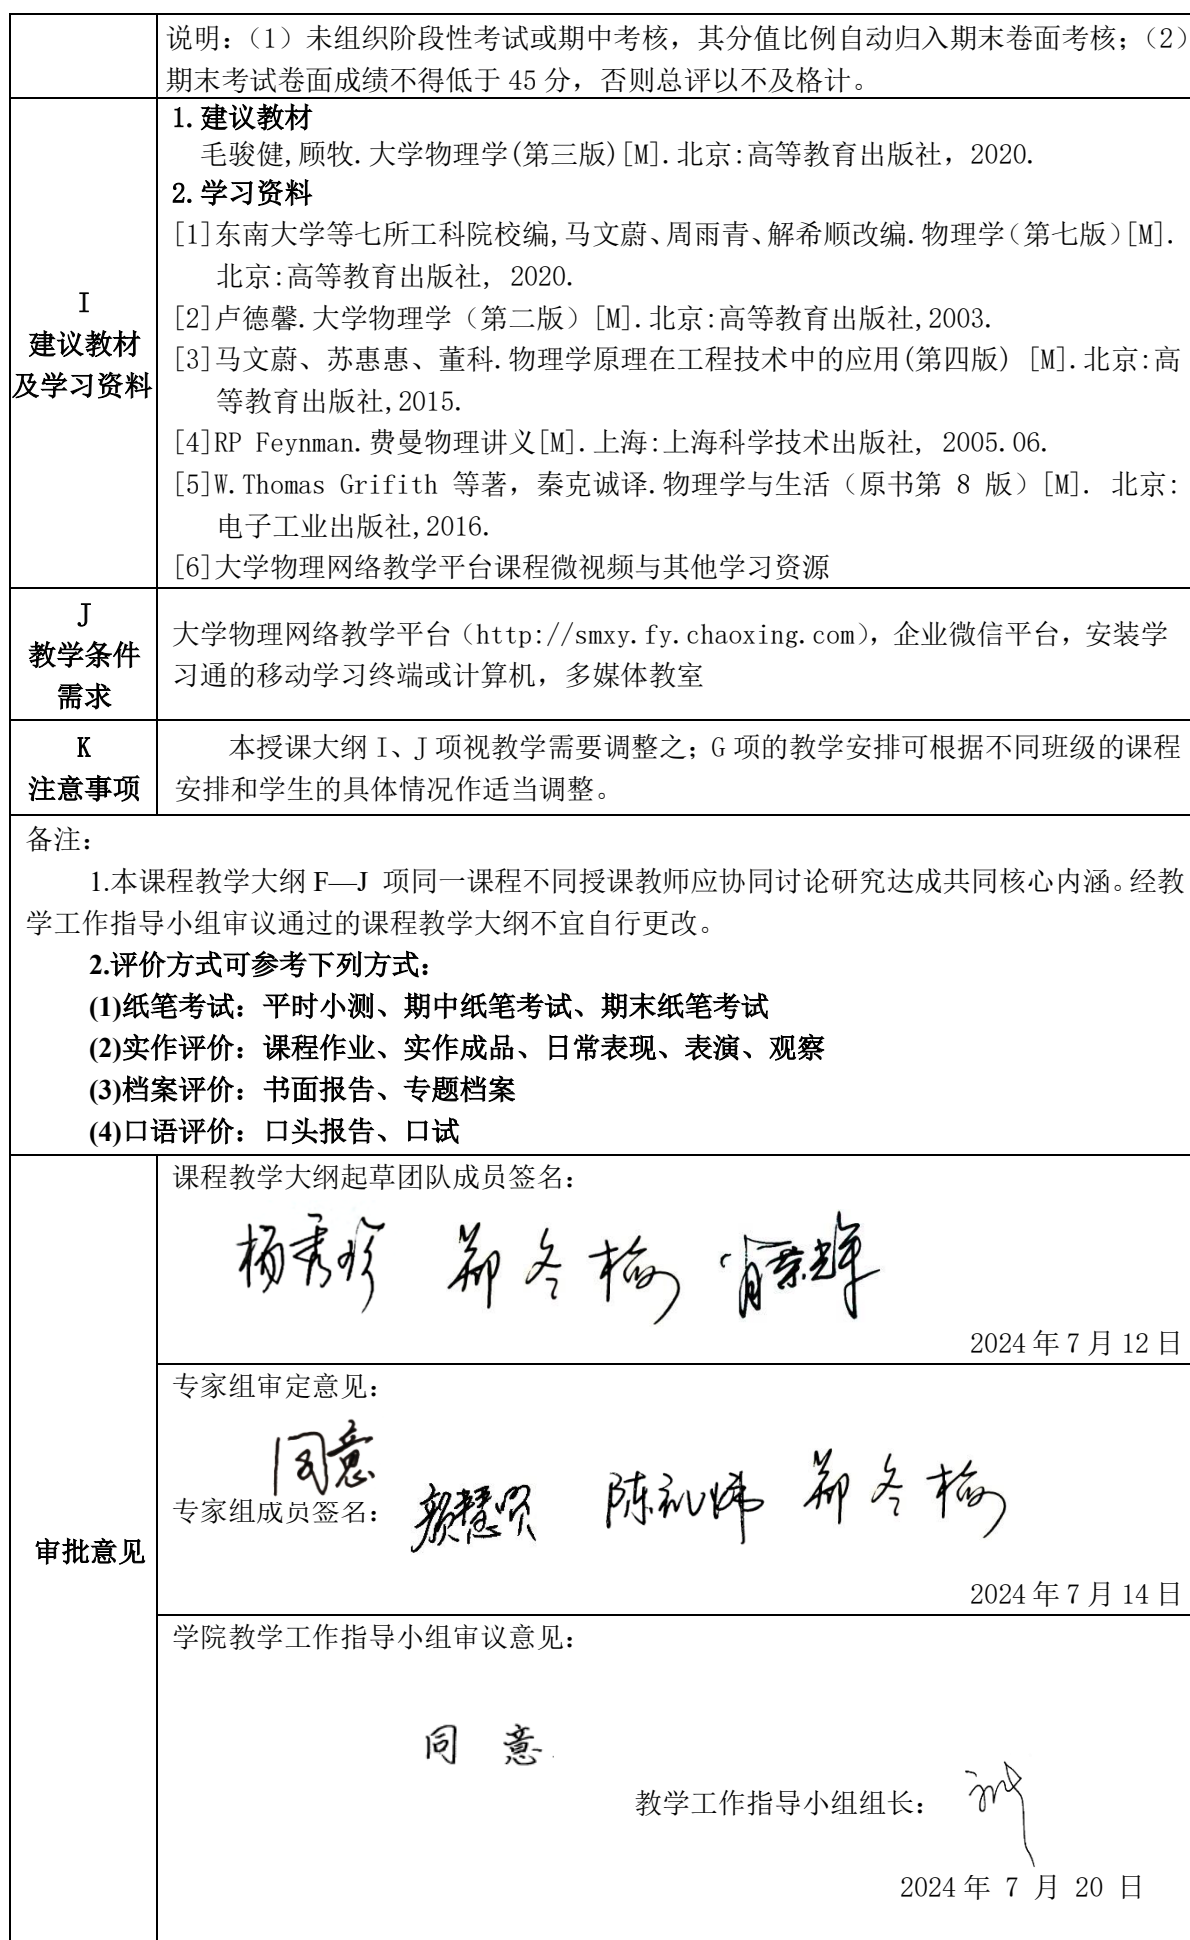 说明：（1）未组织阶段性考试或期中考核，其分值比例自动归入期末卷面考核；（2）
期末考试卷面成绩不得低于 45 分，否则总评以不及格计。
I
建议教材
及学习资料
1.建议教材
毛骏健,顾牧.大学物理学(第三版)[M].北京:高等教育出版社，2020.
2.学习资料
[1]东南大学等七所工科院校编,马文蔚、周雨青、解希顺改编.物理学（第七版）[M].
北京:高等教育出版社, 2020.
[2]卢德馨.大学物理学（第二版）[M].北京:高等教育出版社,2003.
[3]马文蔚、苏惠惠、董科.物理学原理在工程技术中的应用(第四版) [M].北京:高
等教育出版社,2015.
[4]RP Feynman.费曼物理讲义[M].上海:上海科学技术出版社, 2005.06.
[5]W.Thomas Grifith 等著，秦克诚译.物理学与生活（原书第 8 版）[M]. 北京:
电子工业出版社,2016.
[6]大学物理网络教学平台课程微视频与其他学习资源
J
教学条件
需求
大学物理网络教学平台（http://smxy.fy.chaoxing.com），企业微信平台，安装学
习通的移动学习终端或计算机，多媒体教室
K
注意事项
本授课大纲 I、J 项视教学需要调整之；G 项的教学安排可根据不同班级的课程
安排和学生的具体情况作适当调整。
备注：
1.本课程教学大纲 F—J 项同一课程不同授课教师应协同讨论研究达成共同核心内涵。经教
学工作指导小组审议通过的课程教学大纲不宜自行更改。
2.评价方式可参考下列方式：
(1)纸笔考试：平时小测、期中纸笔考试、期末纸笔考试
(2)实作评价：课程作业、实作成品、日常表现、表演、观察
(3)档案评价：书面报告、专题档案
(4)口语评价：口头报告、口试
审批意见
课程教学大纲起草团队成员签名：
杨秀珍 郑冬梅
2024 年 7 月 12 日
专家组审定意见：
同意
专家组成员签名： 郑冬梅
2024 年 7 月 14 日
学院教学工作指导小组审议意见：
同 意
教学工作指导小组组长：
2024 年 7 月 20 日